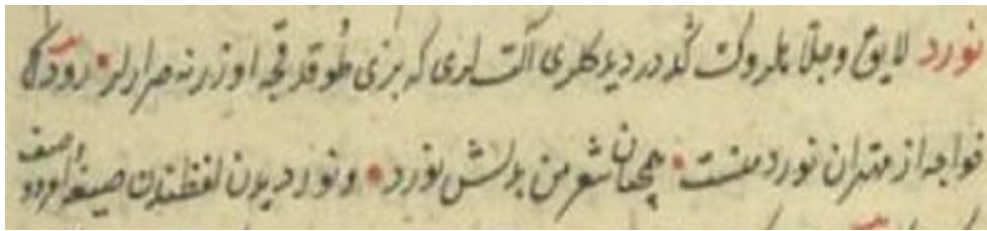 نورد لایق و جلاهلر وکت کد در دیدکلری آلت لری که بزی طوقدقجه اوزرنه صرارلر رودکی
خواجه از مهتران نورد منست همچنان شعر من بدلش نورد و نوردیدن لفظندن صیغهٔ امر و وصف